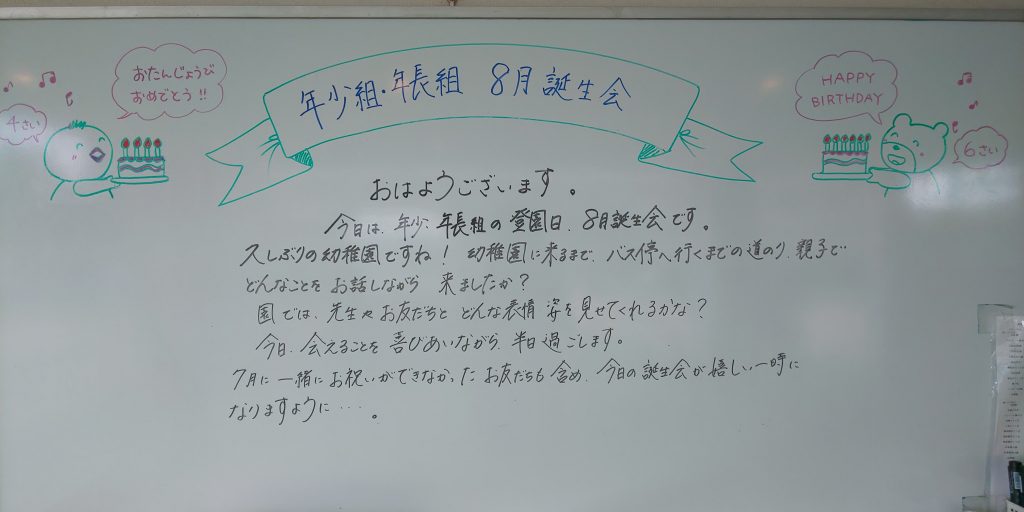 おたんじょうび
おめでとう!!
4さい
年少組・年長組 8月誕生会
HAPPY
BIRTHDAY
6さい
おはようございます。
今日は、年少、年長組の登園日、8月誕生会です。
久しぶりの幼稚園ですね! 幼稚園に来るまで、バス停へ行くまでの道のり、親子で
どんなことを お話しながら 来ましたか?
園では、先生や お友だちと どんな表情 姿を見せてくれるかな?
今日、会えることを 喜びあいながら、半日過ごします。
7月に 一緒に お祝いができなかった お友だちも 含め、今日の誕生会が 嬉しい一時に
なりますように・・・。